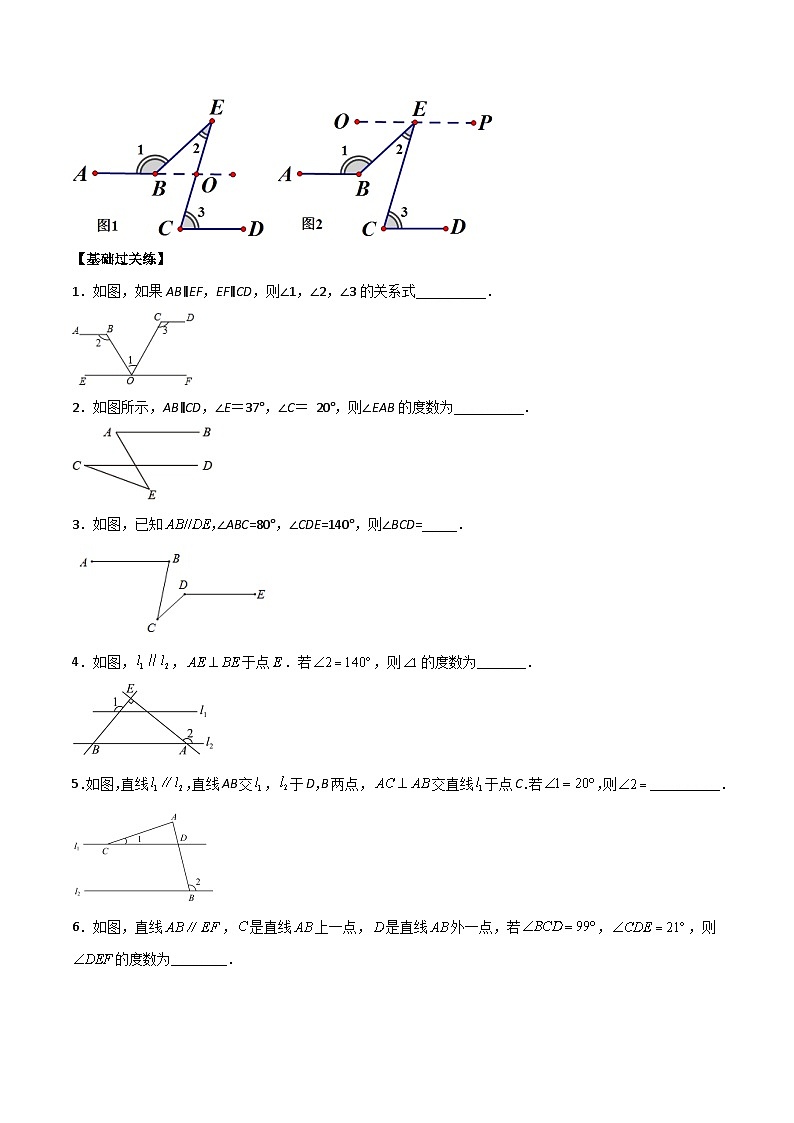 E
E
O
P
1
2
1
2
A
B
O
A
B
3
3
图1
C
D
图2
C
D
【基础过关练】
1．如图，如果AB∥EF，EF∥CD，则∠1，∠2，∠3的关系式__________．
C
D
A
B
3
2
1
E
O
F
2．如图所示，AB∥CD，∠E＝37°，∠C＝ 20°，则∠EAB的度数为__________．
A
B
C
D
E
3．如图，已知AB//DE,∠ABC=80°，∠CDE=140°，则∠BCD=_____．
A
B
D
E
C
4．如图，l₁∥l₂，AE⊥BE于点E．若∠2=140°，则∠1的度数为_______．
E
1
l₁
2
l₂
B
A
5.如图,直线l₁∥l₂,直线AB交l₁，l₂于D,B两点，AC⊥AB交直线l₁于点C.若∠1=20°,则∠2=__________．
A
1
D
l₁
C
2
l₂
B
6．如图，直线AB∥EF，C是直线AB上一点，D是直线AB外一点，若∠BCD=99°，∠CDE=21°，则
∠DEF的度数为________．